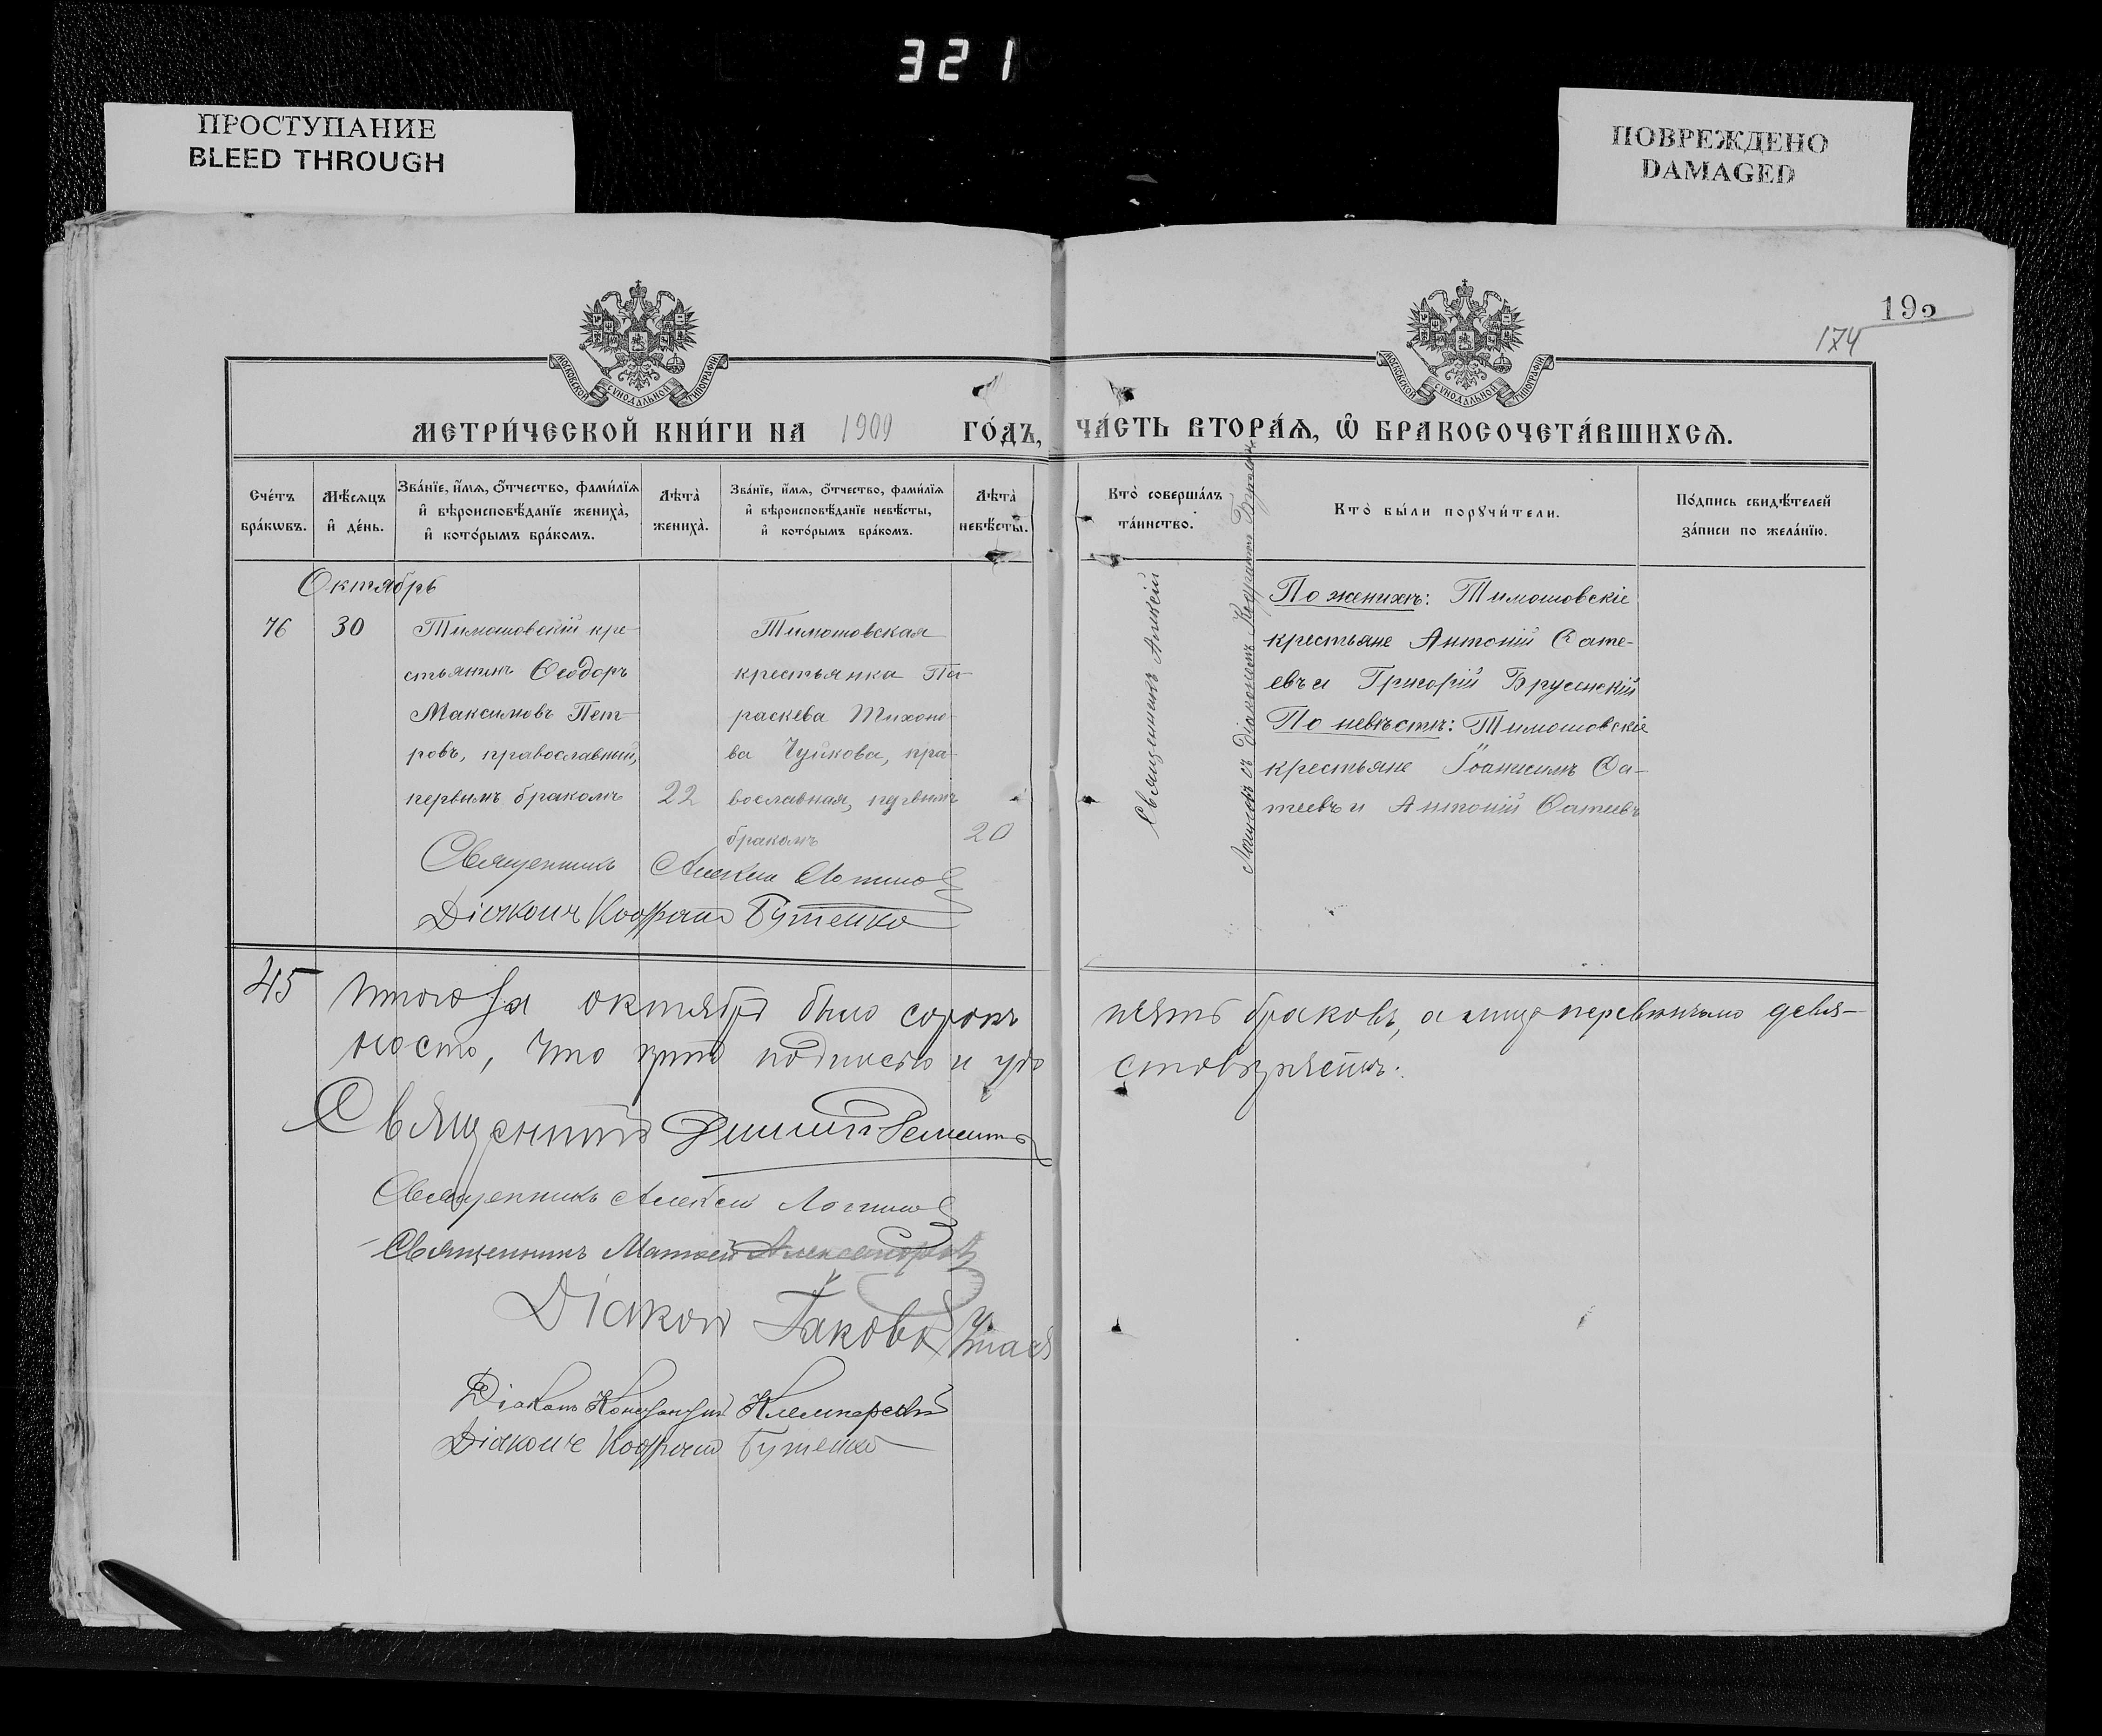 321
ПРОСТУПАНИЕ
BLEED THROUGH
ПОВРЕЖДЕНО
DAMAGED
192
174
МОСКОВСКОЙ СУНОДАЛЬНОЙ ТИПОГРАФІИ
МОСКОВСКОЙ СУНОДАЛЬНОЙ ТИПОГРАФІИ
МЕТРИ́ЧЕСКОЙ КНИ́ГИ НА 1909 ГО́ДЪ,
ЧА́СТЬ ВТОРА́Ѧ, Ѽ БРАКОСОЧЕТА́ВШИХСѦ.
Сче́тъ бра́кѡвъ.
Мѣ́сѧцъ и҆ де́нь.
Зва́нїе, и҆́мѧ, ѻ҆́тчество, фами́лїѧ и҆ вѣроисповѣ́данїе жениха̀, и҆ кото́рымъ бра́комъ.
Лѣта̀ жениха̀.
Зва́нїе, и҆́мѧ, ѻ҆́тчество, фами́лїѧ и҆ вѣроисповѣ́данїе невѣ́сты, и҆ кото́рымъ бра́комъ.
Лѣта̀ невѣ́сты.
Кто̀ соверша́лъ та́инство.
Кто̀ бы́ли порꙋчи́тели.
По́дпись свидѣ́телей за́писи по жела́нїю.
Октябрь
76
30
Тимошовскій кре-
стьянинъ Ѳеодоръ
Максимовъ Пет-
ровъ, православный,
первымъ бракомъ
22
Тимошовская
крестьянка Па-
раскева Тихоно-
ва Чуйкова, пра-
вославная, первымъ
бракомъ
20
Священникъ Алексій
съ Діакономъ Кодратомъ Бутенко
По женихѣ: Тимошовскіе
крестьяне Антоній Ѳате-
евъ и Григорій Брусенскій
По невѣстѣ: Тимошовскіе
крестьяне Іоанникъ Ѳа-
теевъ и Антоній Ѳатеевъ
Священникъ Алексій
Діаконъ Кодратъ Бутенко
45
Итого за октябрь было сорокъ пять браковъ, а лицъ перевѣнчано девя-
носто, что причтъ подписью и удо стовѣряетъ.
Священникъ
Священникъ Алексій
Священникъ Матѳей Александровъ
Діаконъ Іаковъ
Діаконъ
Діаконъ Кодратъ Бутенко